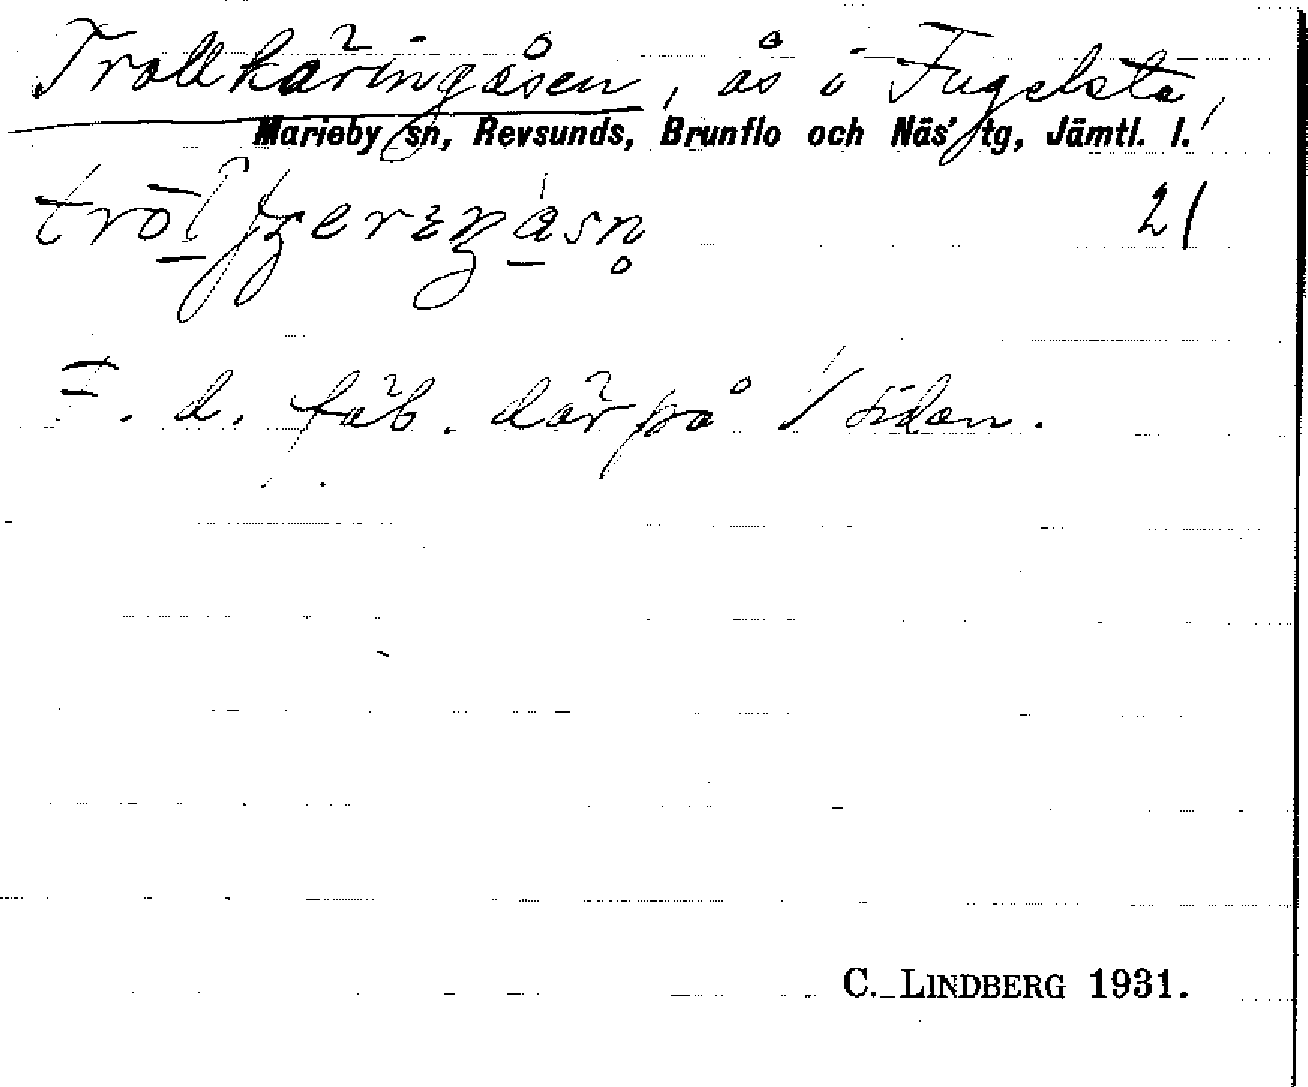 Trollkäringåsen, ås i Fugelsta,
Marieby sn, Revsunds, Brunflo och Näs' tg, Jämtl. l.
21
F. d. fäb. där på / sidan.
C. LINDBERG 1931.